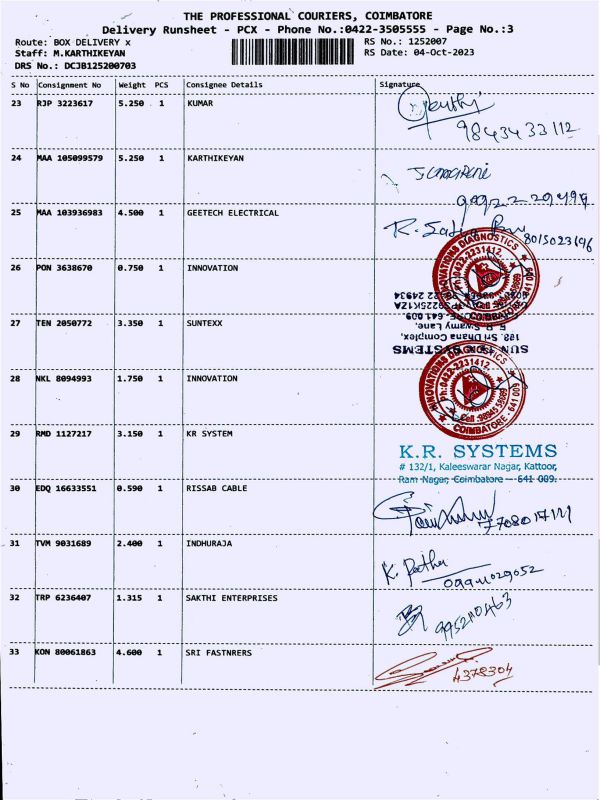 THE PROFESSIONAL COURIERS, COIMBATORE
Delivery Runsheet - PCX - Phone No.:0422-3505555 - Page No.:3
Route: BOX DELIVERY x RS No.: 1252007
Staff: M.KARTHIKEYAN RS Date: 04-Oct-2023
DRS No.: DCJB125200703
S No Consignment No Weight PCS Consignee Details Signature
23 RJP 3223617 5.250 1 KUMAR
9843433112
24 MAA 105099579 5.250 1 KARTHIKEYAN
25 MAA 103936983 4.500 1 GEETECH ELECTRICAL
8015023696
26 PON 3638670 0.750 1 INNOVATION
INNOVATIONS DIAGNOSTICS
Ph:0422-2231412
COIMBATORE - 641 009
27 TEN 2050772 3.350 1 SUNTEXX
188, Sri Dhana Complex,
28 NKL 8094993 1.750 1 INNOVATION
INNOVATIONS DIAGNOSTICS
Ph:0422-2231412
Cell :98945 58989
COIMBATORE - 641 009
29 RMD 1127217 3.150 1 KR SYSTEM
K.R. SYSTEMS
# 132/1, Kaleeswarar Nagar, Kattoor,
Ram Nagar, Coimbatore - 641 009.
30 EDQ 16633551 0.590 1 RISSAB CABLE
31 TVM 9031689 2.400 1 INDHURAJA
32 TRP 6236407 1.315 1 SAKTHI ENTERPRISES
33 KON 80061863 4.600 1 SRI FASTNRERS
4378304